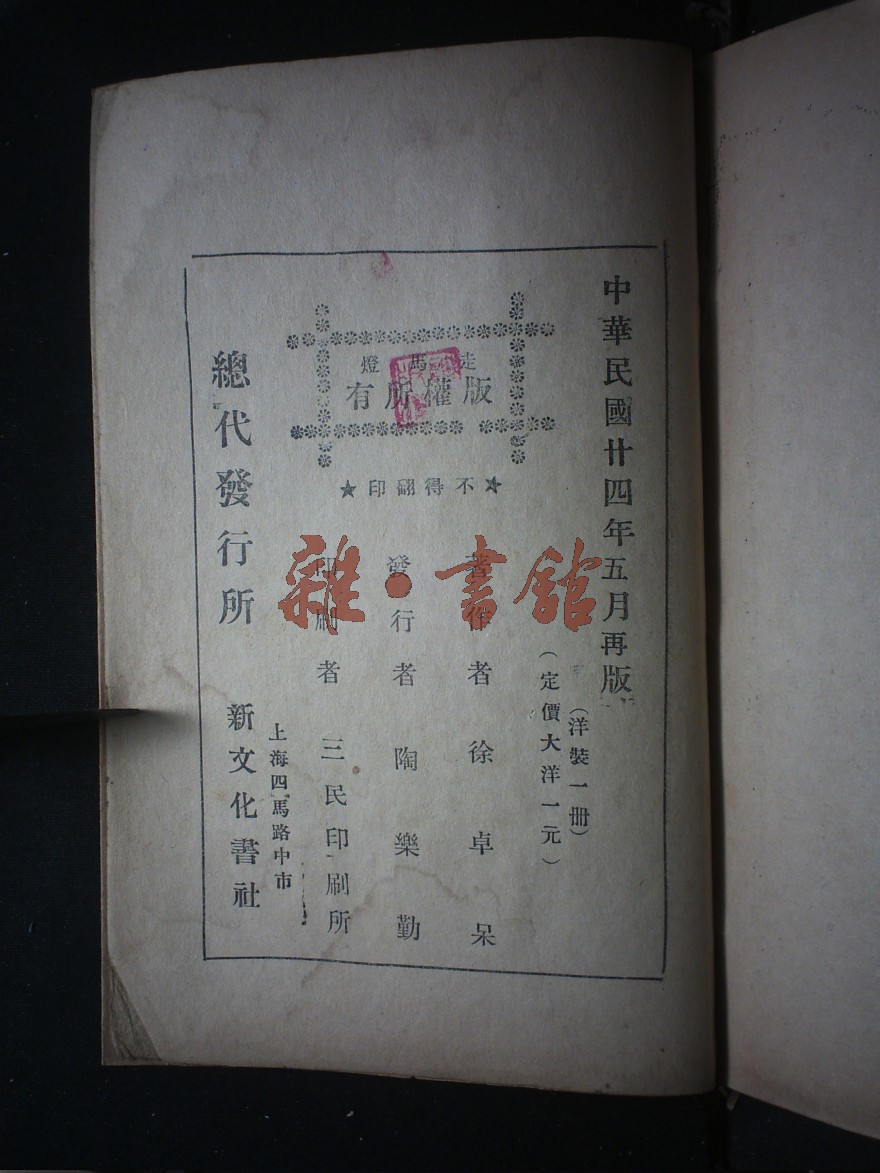 中華民國廿四年五月再版
(洋裝一册)
(定價大洋一元)
走馬燈
版權所有
★不得翻印★
著作者 徐卓呆
發行者 陶樂勤
印刷者 三民印刷所
上海四馬路中市
總代發行所 新文化書社
雜·書館